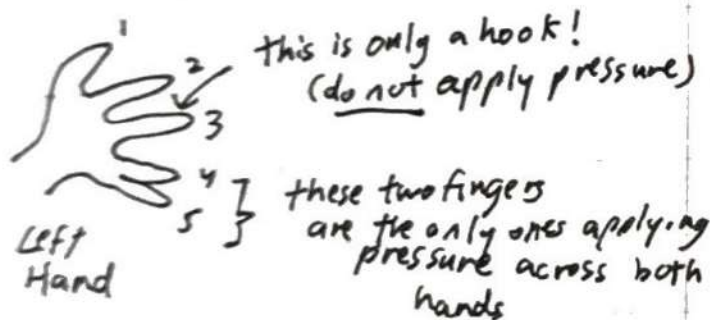 1
2
this is only a hook!
(do not apply pressure)
3
4
5
these two fingers
are the only ones applying
pressure across both
hands
Left
Hand